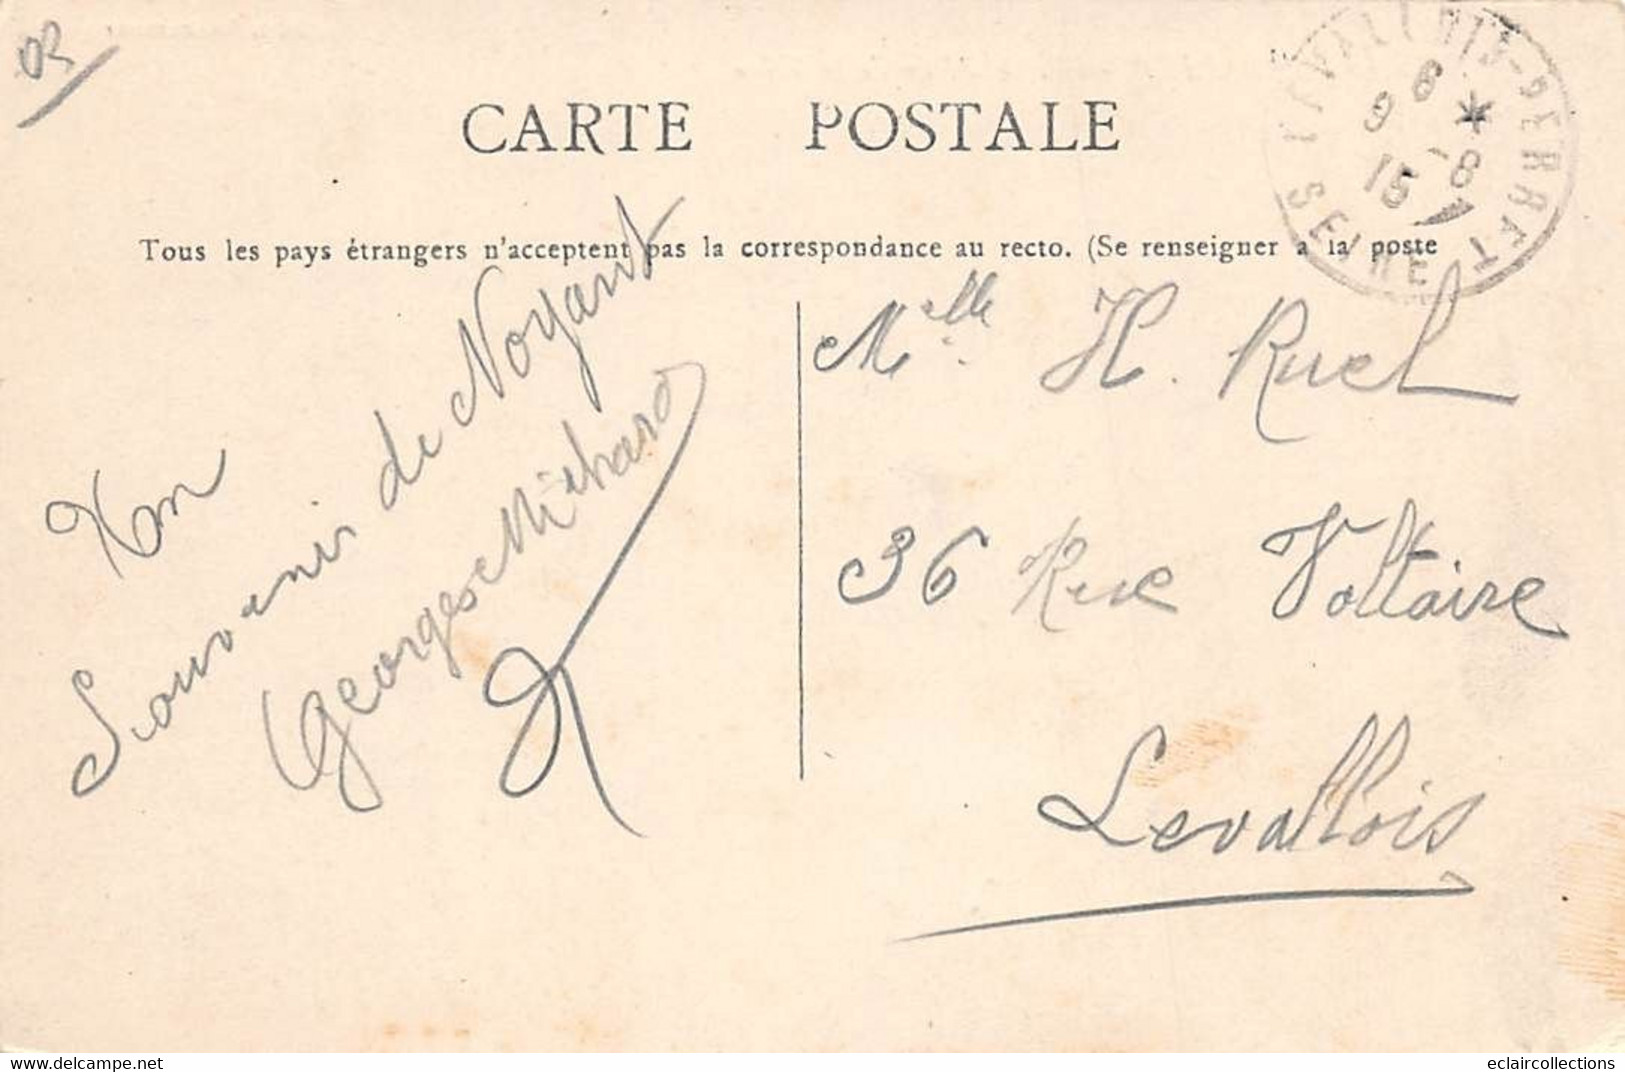 03
CARTE POSTALE
Tous les pays étrangers n'acceptent pas la correspondance au recto. (Se renseigner a la poste
LAVALLOIS-PERRET
6 *
9 -8
15
SEINE
Mon
Souvenir de Noyant
Georges Michard
Melle H. Ruel
36 Rue Voltaire
Levallois
www.delcampe.net
eclaircollections